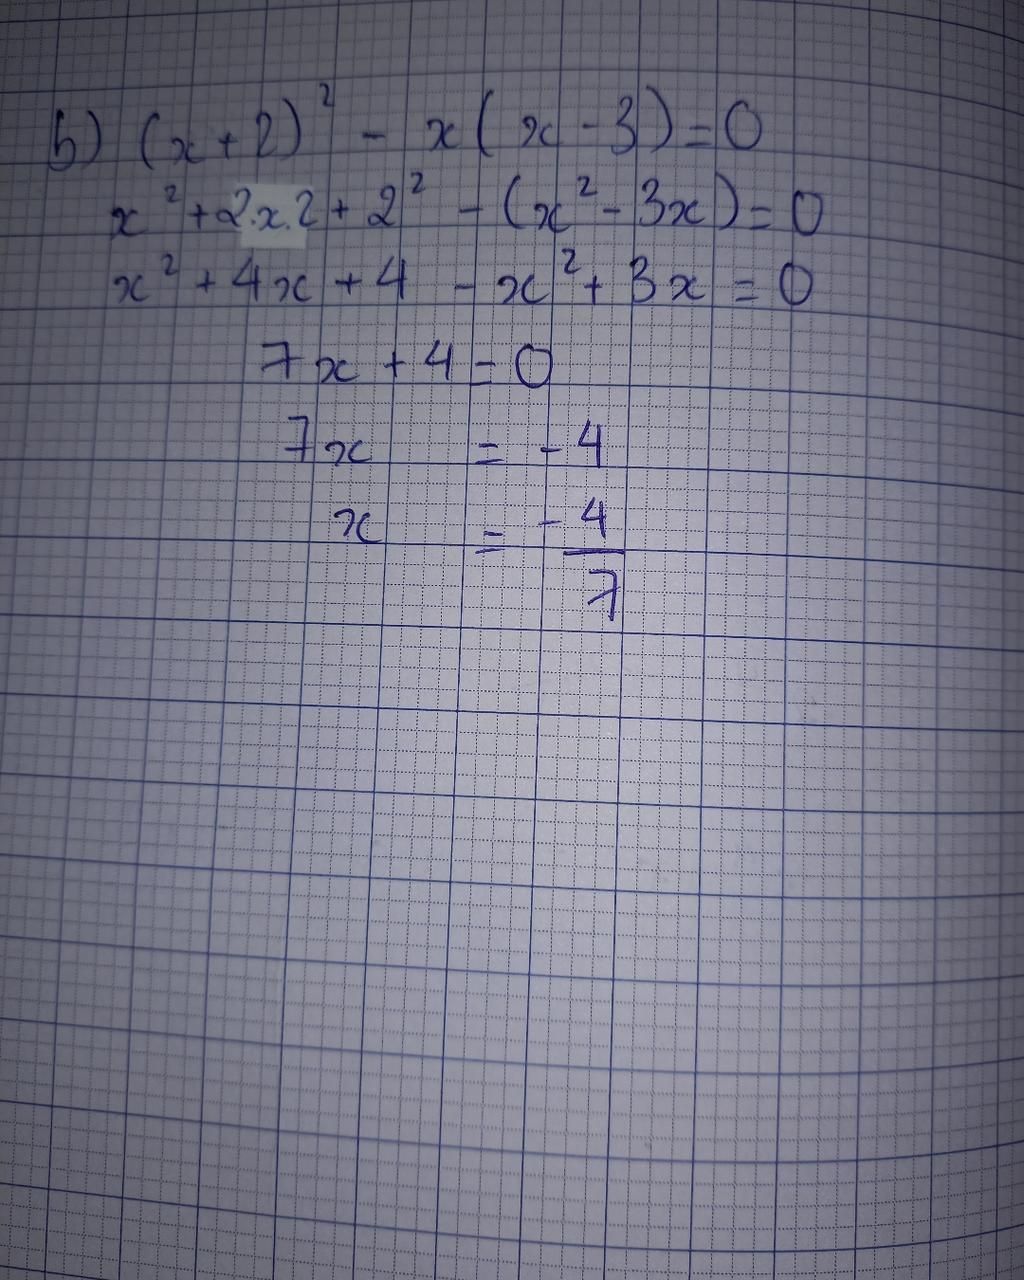 b) (x + 2)² - x(x - 3) = 0
x² + 2.x.2 + 2² - (x² - 3x) = 0
x² + 4x + 4 - x² + 3x = 0
7x + 4 = 0
7x = -4
x = -4/7